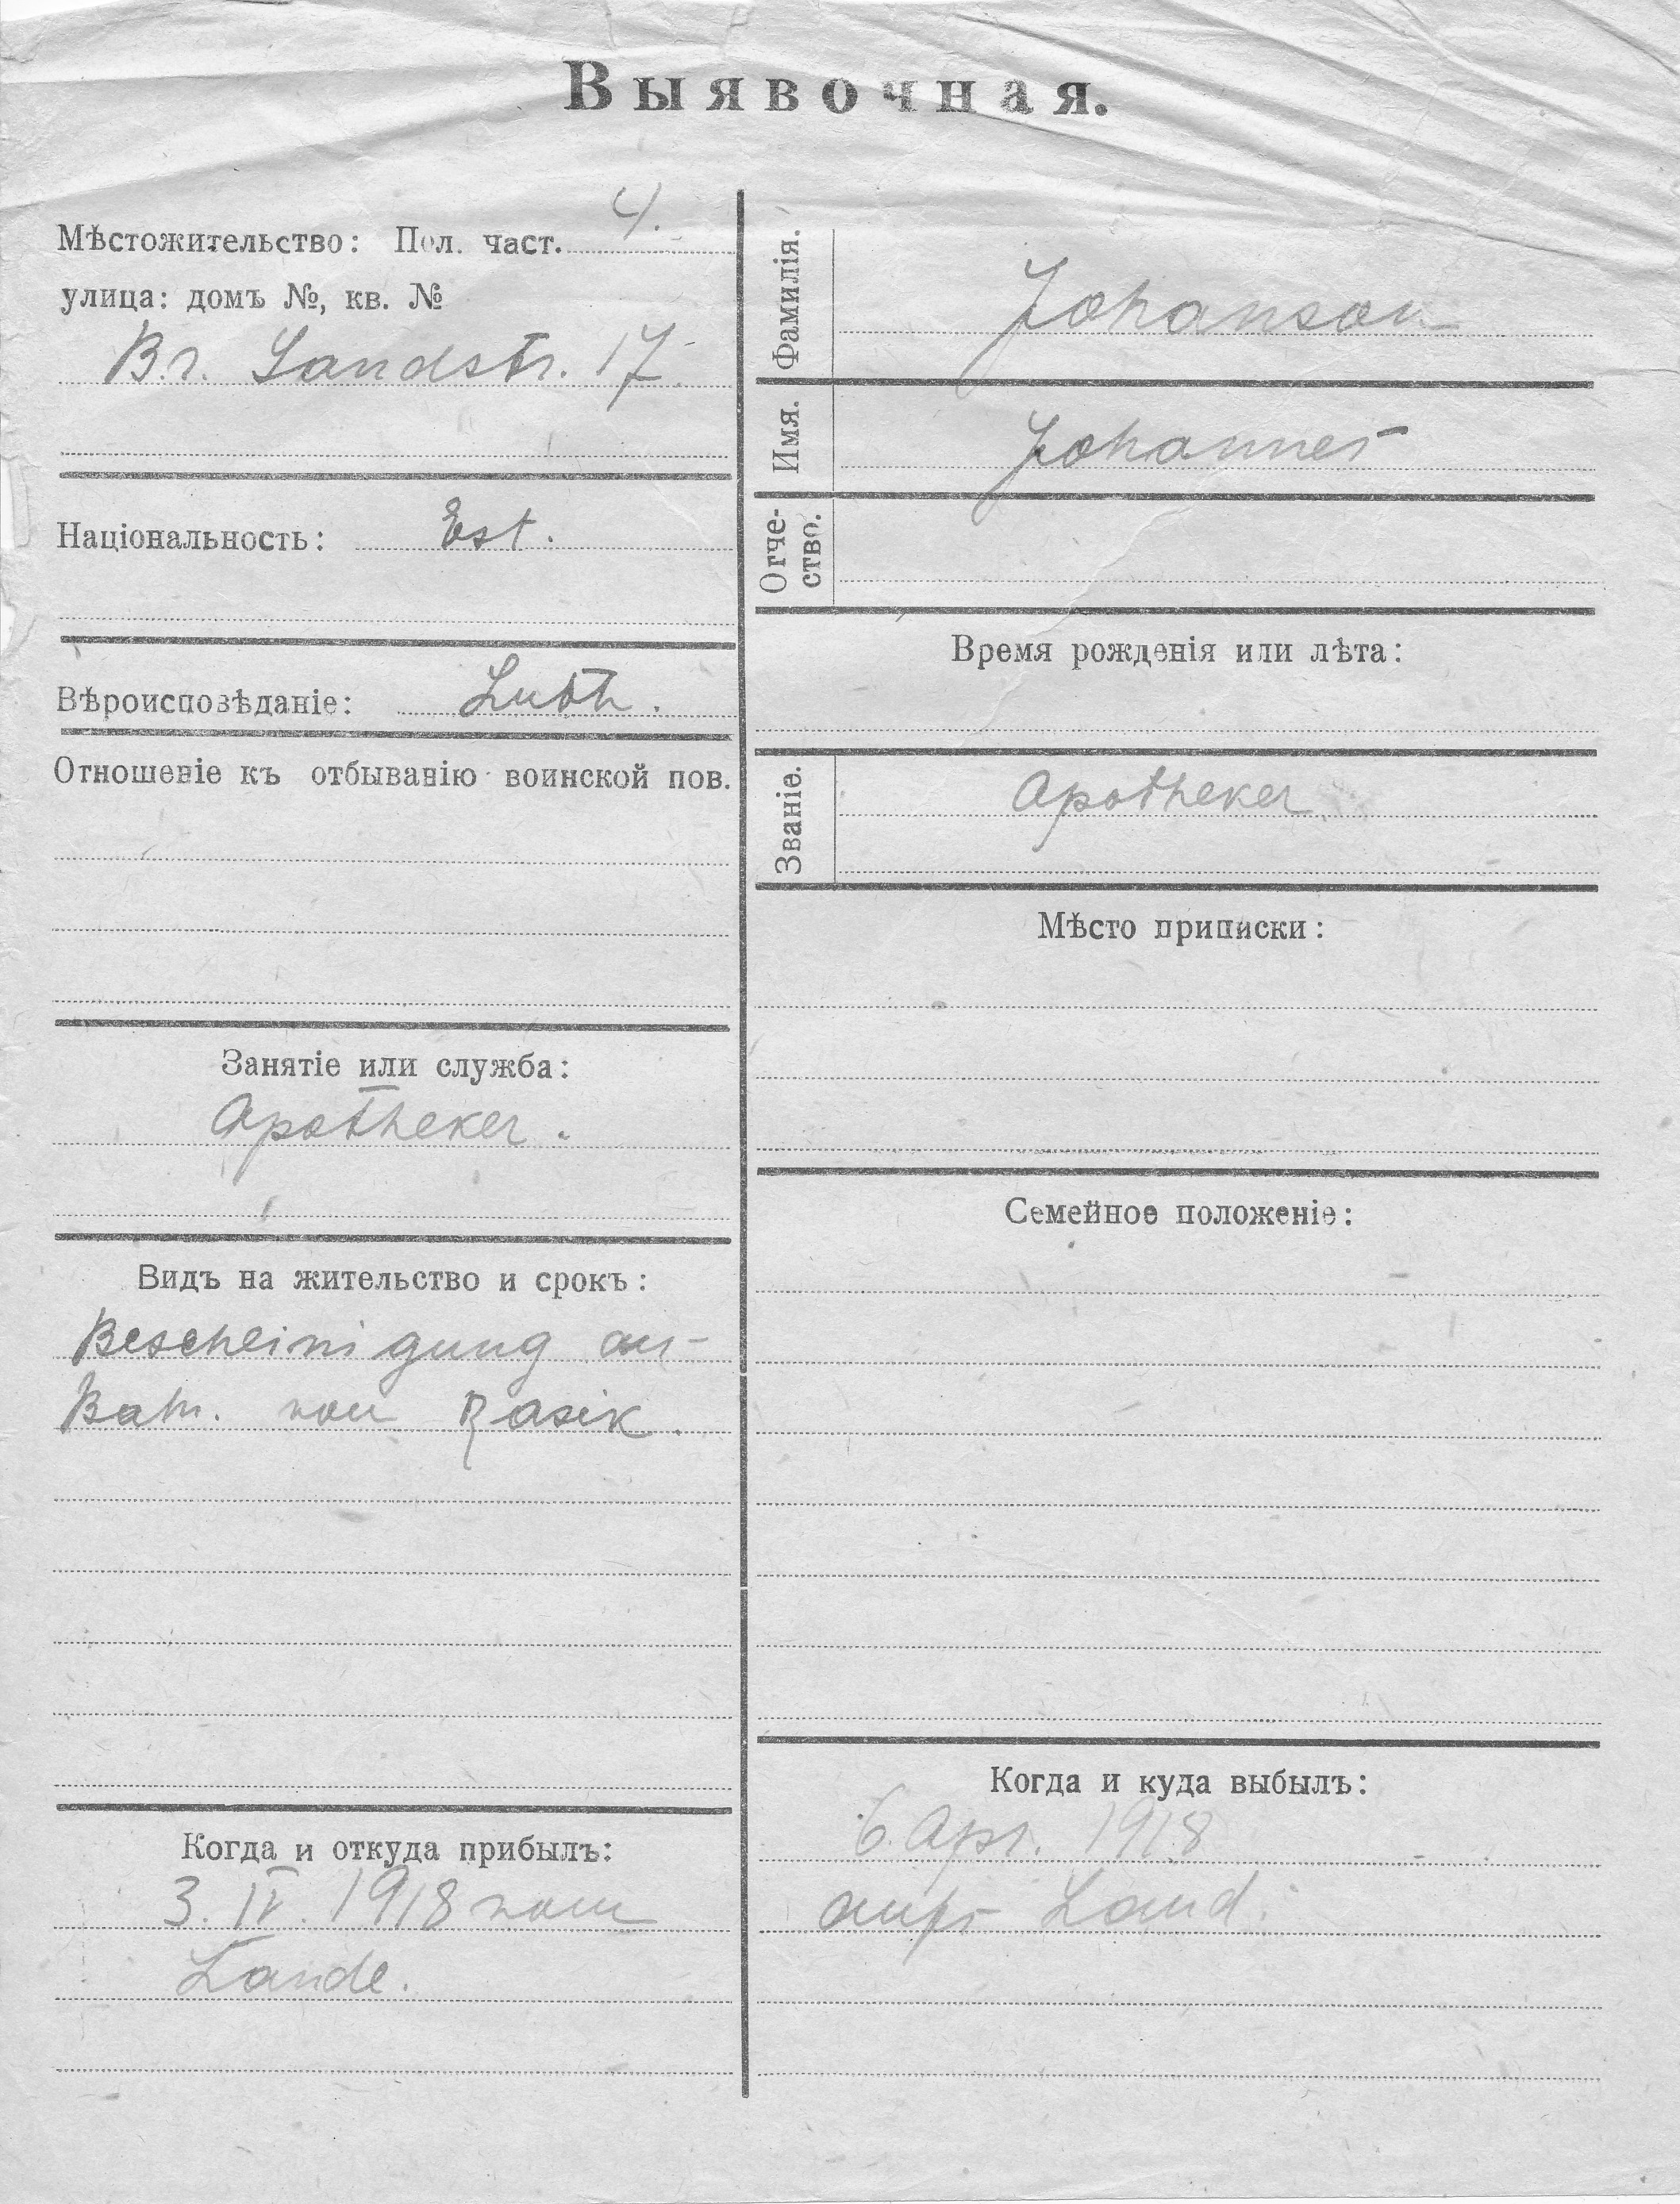 Выявочная.
Мѣстожительство: Пол. част. 4.
улица: домъ №, кв. №
Br. Sandstr. 17.
Національность: Est.
Вѣроисповѣданіе: Luth.
Отношеніе къ отбыванію воинской пов.
Занятіе или служба:
Apotheker.
Видъ на жительство и срокъ:
Bescheinigung
von Rasik.
Когда и откуда прибылъ:
3. IV. 1918 vom
Lande.
Фамилія. Johanson
Имя. Johannes
Отче-
ство.
Время рожденія или лѣта:
Званіе. Apotheker
Мѣсто приписки:
Семейное положеніе:
Когда и куда выбылъ:
6. Apr. 1918
aufs Land.